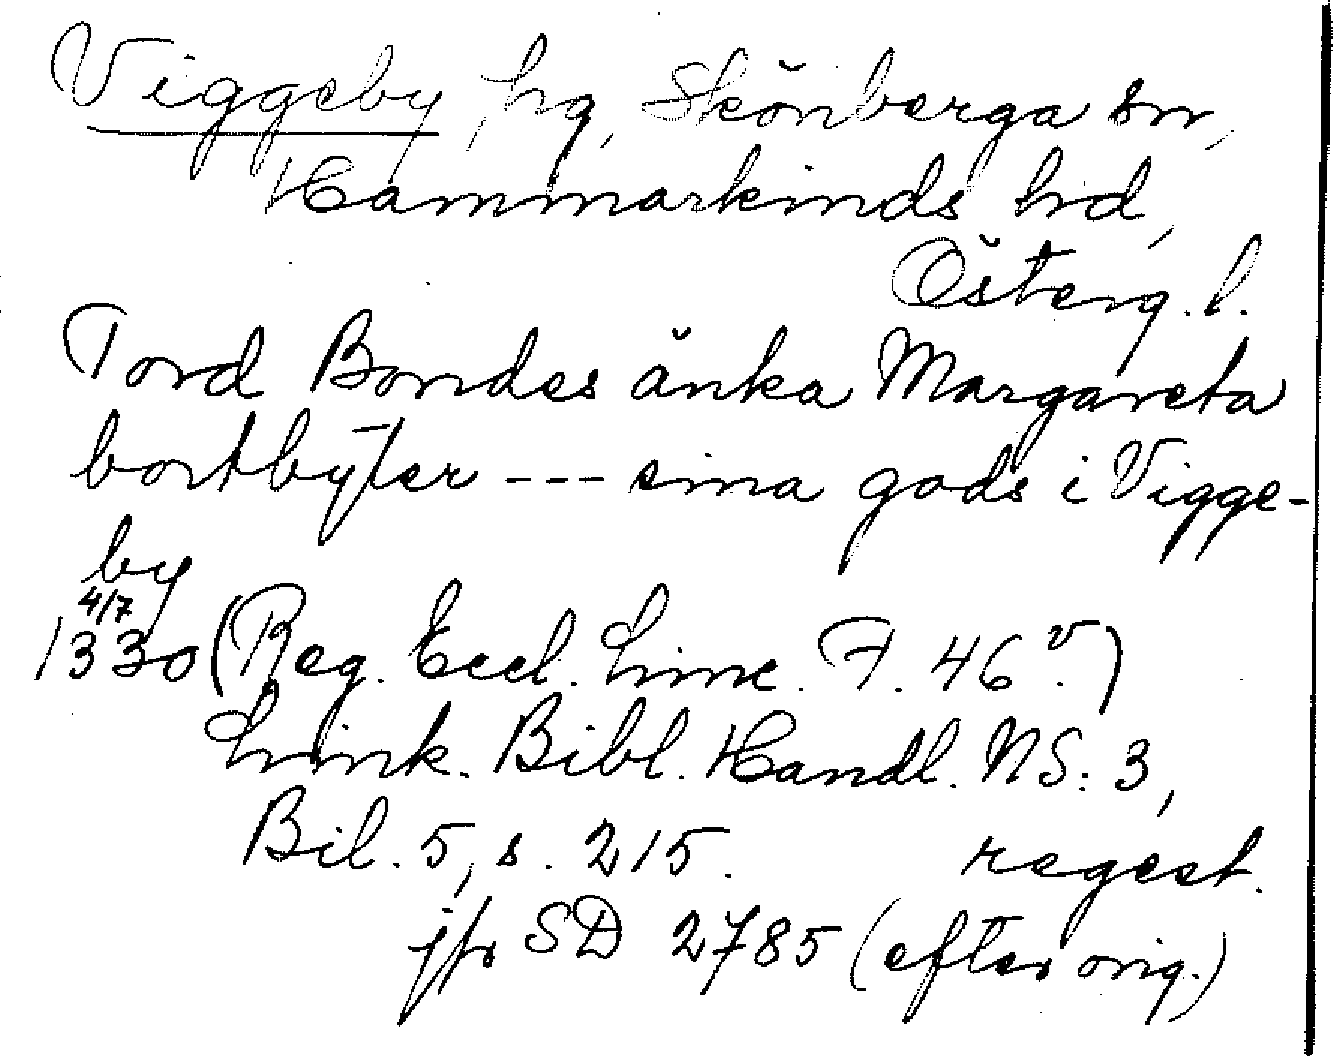 Viggeby hg, Skönberga sn,
Hammarkinds hd,
Österg. l.
Tord Bondes änka Margareta
bortbyter --- sina gods i Vigge-
by
4/7
1330 (Reg. Eccl. Linc. F. 46 v.)
Link. Bibl. Handl. NS: 3,
Bil. 5, s. 215. regest.
jfr SD 2785 (efter orig.)